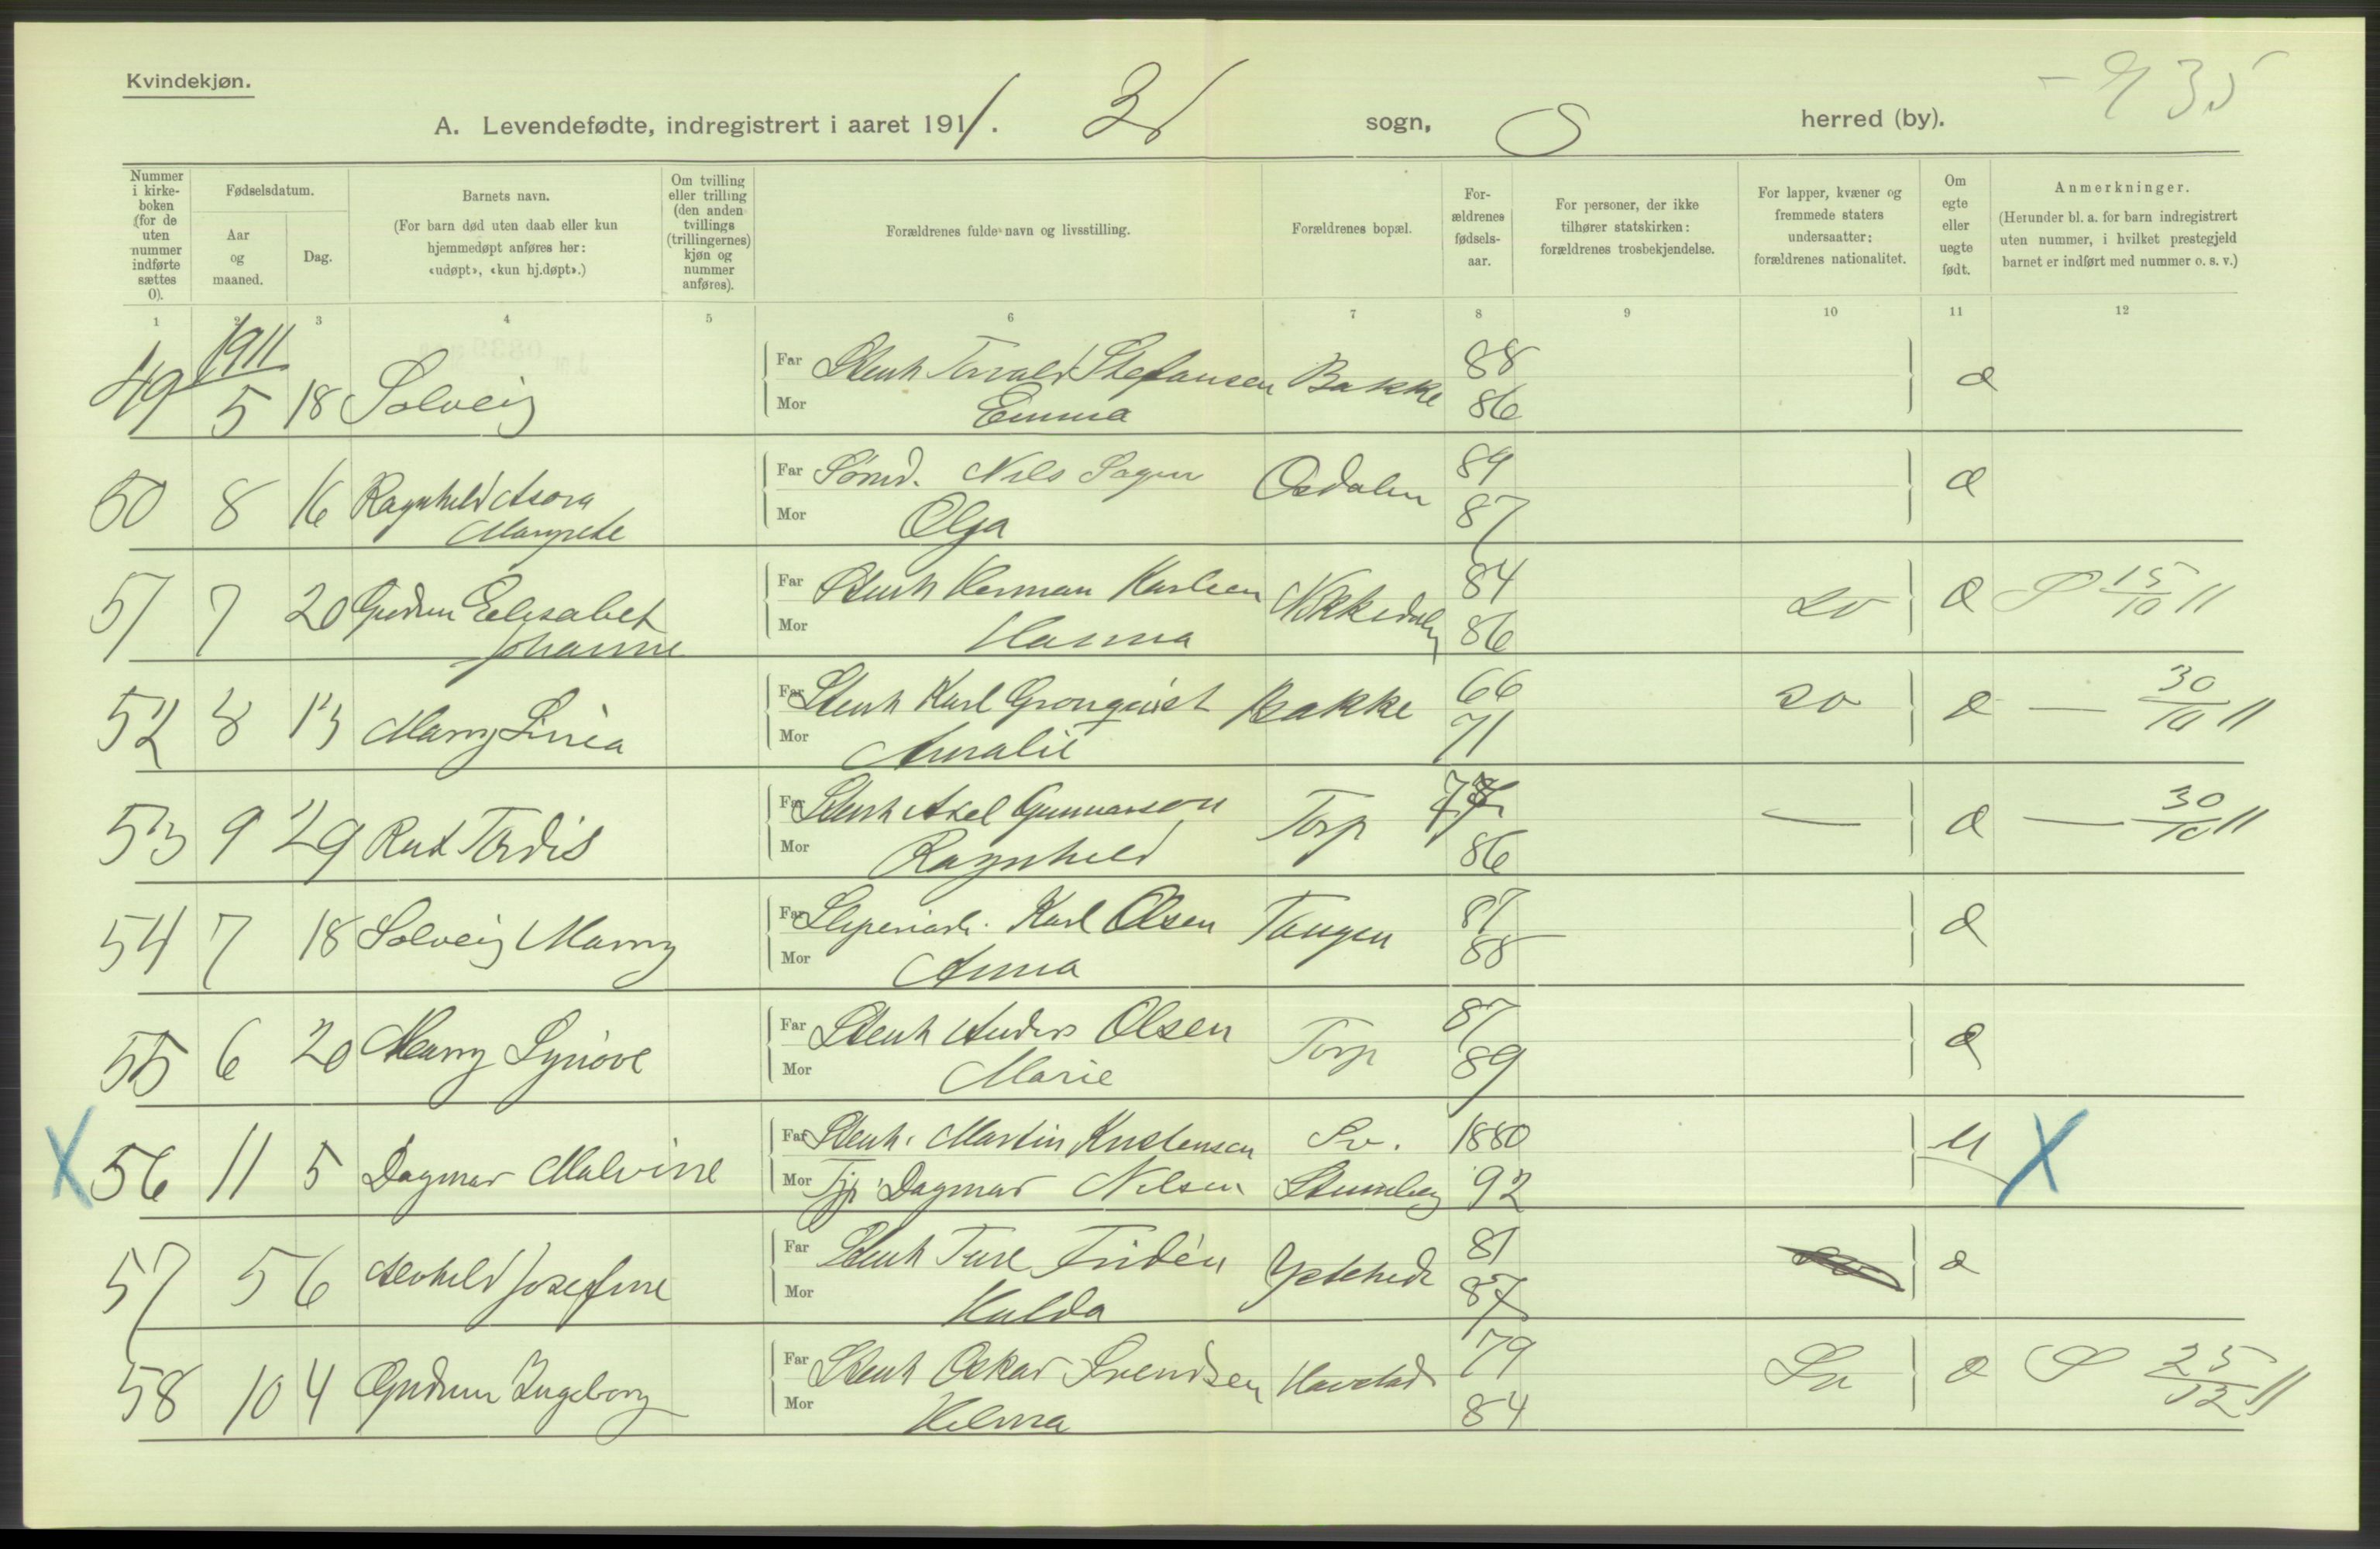 Kvindekjøn.
- 935
A. Levendefødte, indregistrert i aaret 1911. sogn, herred (by).
Nummer i kirkeboken (for de uten nummer indførte sættes 0).
Fødselsdatum.
Aar og maaned.
Dag.
Barnets navn.
(For barn død uten daab eller kun hjemmedøpt anføres her: «udøpt», «kun hj.døpt».)
Om tvilling eller trilling (den anden tvillings (trillingernes) kjøn og nummer anføres).
Forældrenes fulde navn og livsstilling.
Forældrenes bopæl.
Forældrenes fødselsaar.
For personer, der ikke tilhører statskirken: forældrenes trosbekjendelse.
For lapper, kvæner og fremmede staters undersaatter: forældrenes nationalitet.
Om egte eller uegte født.
Anmerkninger.
(Herunder bl. a. for barn indregistrert uten nummer, i hvilket prestegjeld barnet er indført med nummer o. s. v.)
1 2 3 4 5 6 7 8 9 10 11 12
1911
49 5 18 Solveig Far Stenh Torvald Stefansen Bakke 88
Mor Emma 86
50 8 16 Ragnhild Asora Far Nils Sagen 89
Margrete Mor Olga 87
51 7 20 Gudrun Elisabet Far Stenh Herman Karlsen 84 sv 15/10 11
Johanne Mor Hanna 86
52 8 13 Marry Linea Far Stenh Karl Gronqvist Bakke 66 sv — 30/10 11
Mor Amalie 71
53 9 29 Rut Tordis Far Stenh Axel Gunnarson Torp — — 30/10 11
Mor Ragnhild 86
54 7 18 Solveig Marry Far Sliperiarb. Karl Olsen Tangen 87
Mor Anna 88
55 6 20 Marry Synöve Far Stenh Anders Olsen Torp 87
Mor Marie 89
X 56 11 5 Dagmar Malvine Far Stenh. Martin Kristensen Sv. 1880 U X
Mor Tjp. Dagmar Nilsen 92
57 5 6 Alvhild Josefine Far Stenh Ture Fridén Ystehede 81
Mor Hulda 87
58 10 4 Gudrun Ingeborg Far Stenh Oskar Svendsen 79 Sv S 25/12 11
Mor Hilma 84